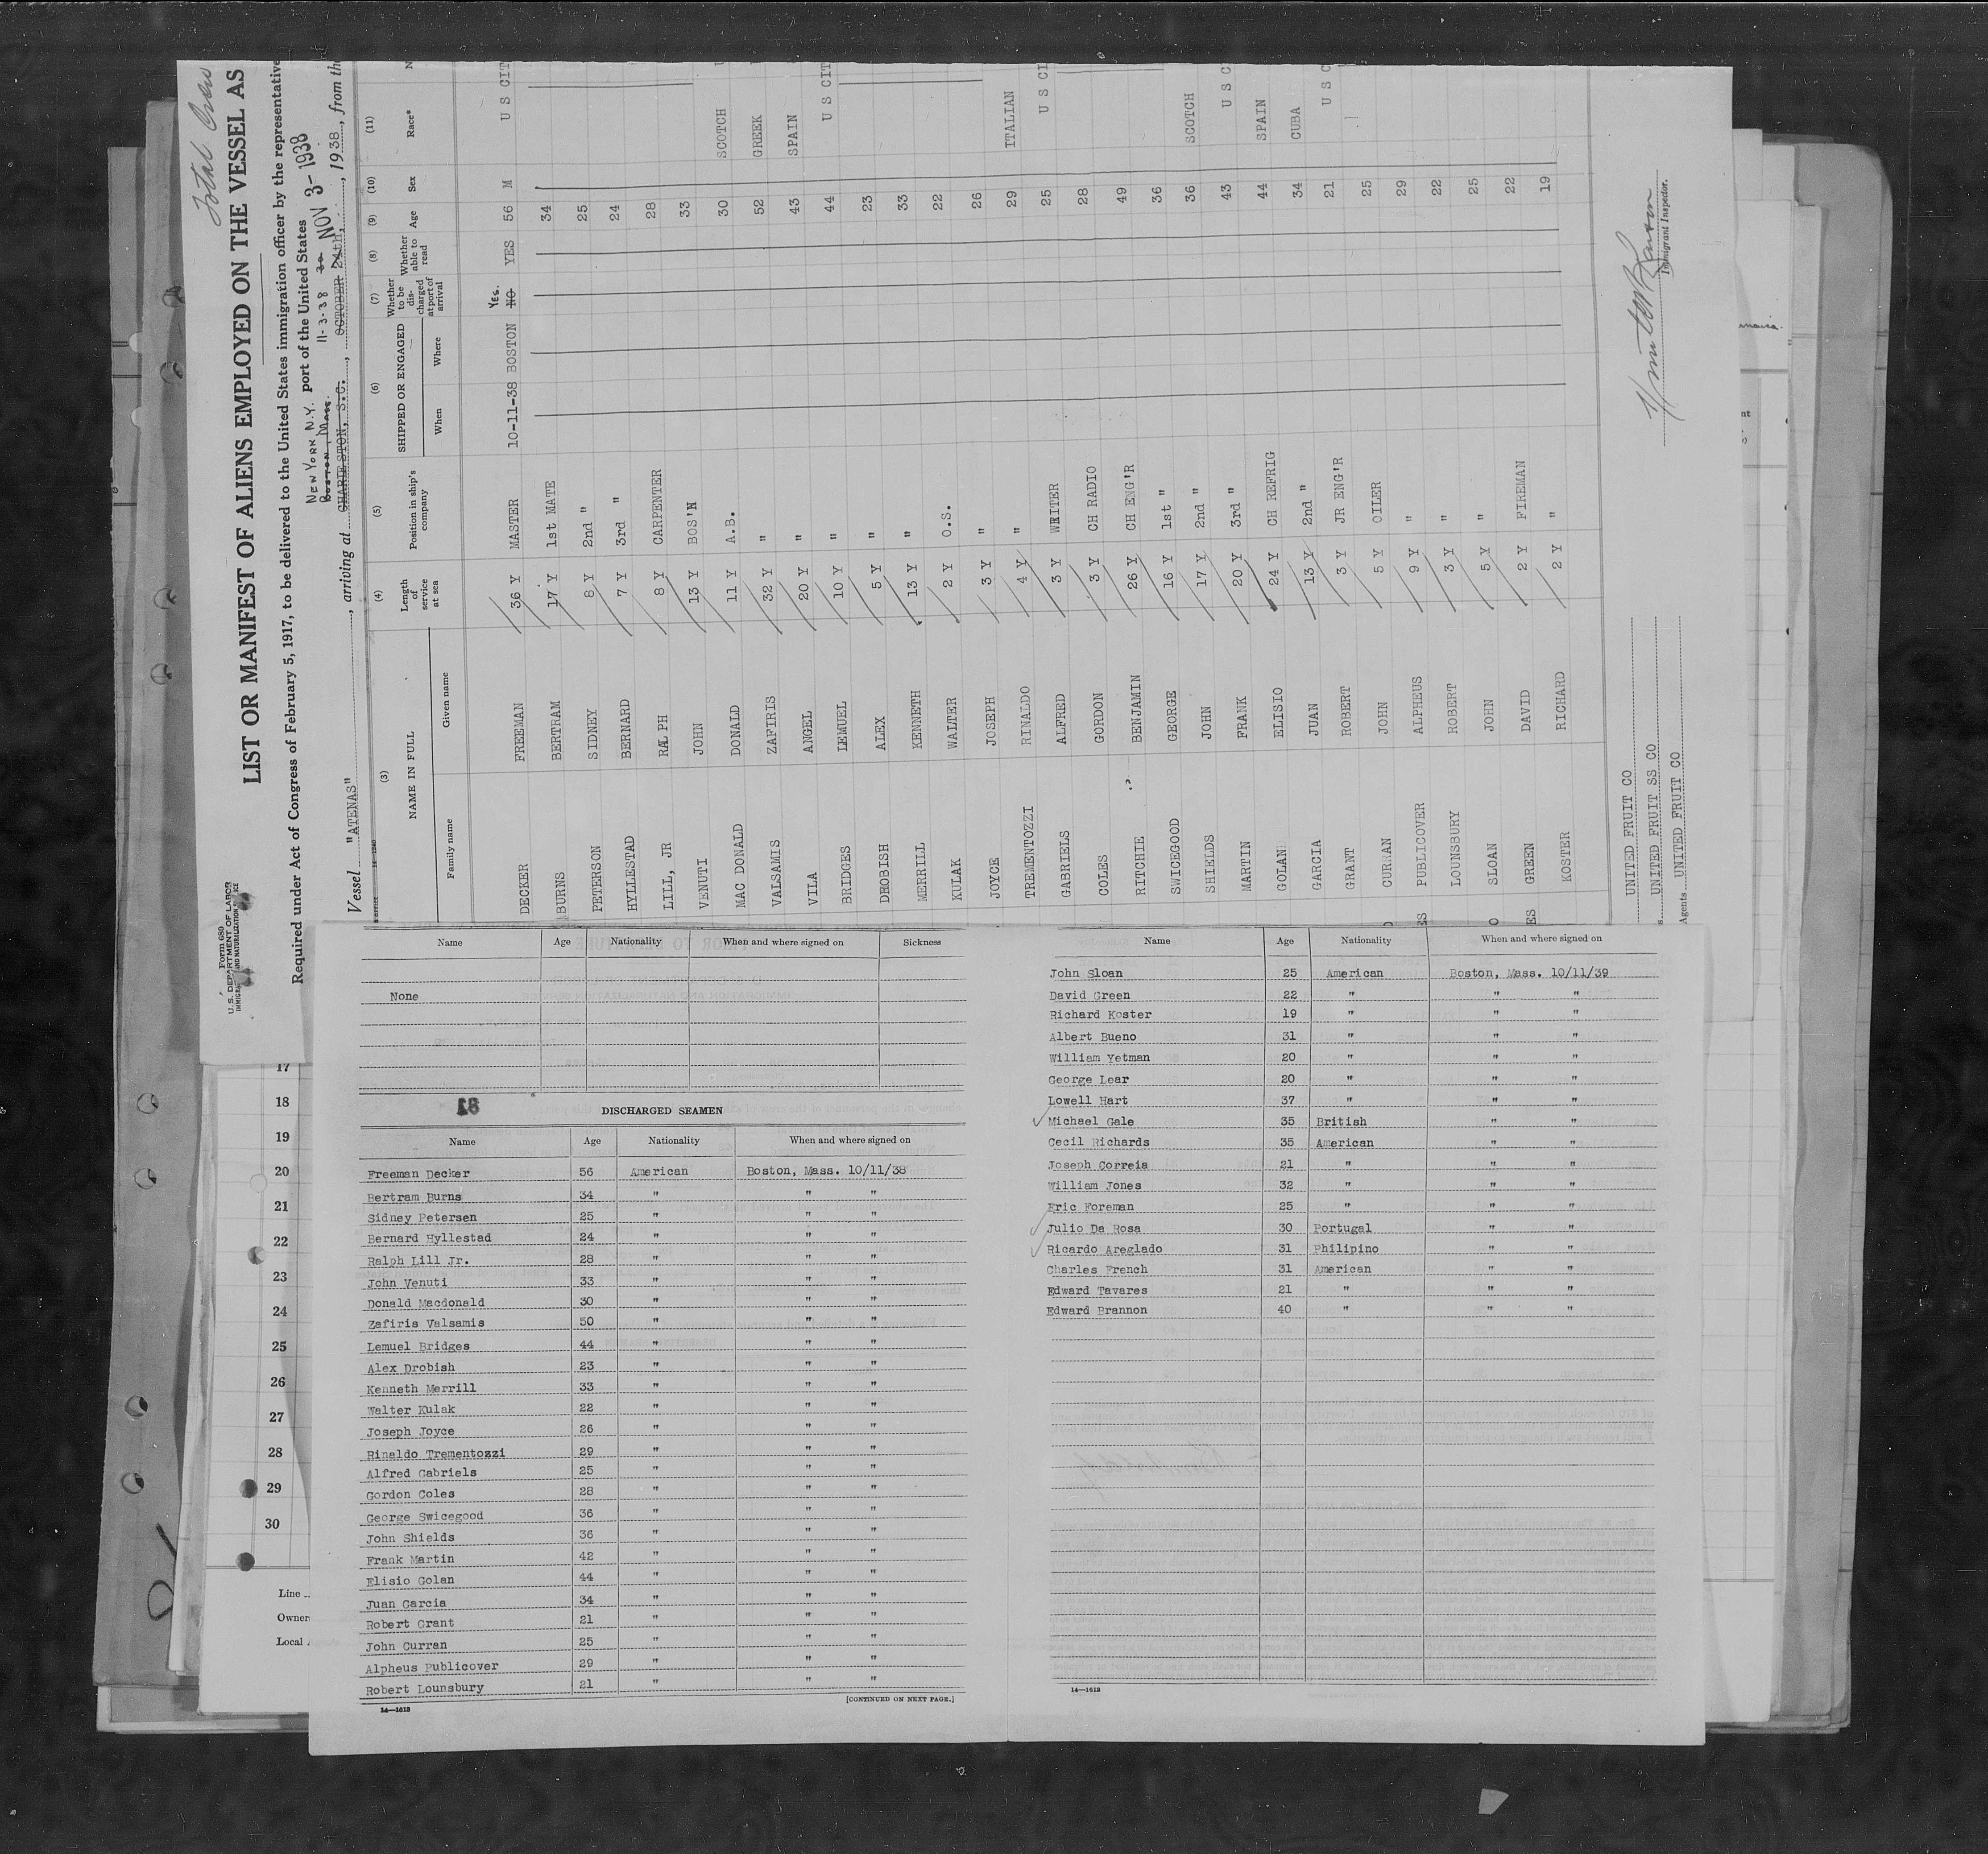 Total Crew
Form 680
U.S. DEPARTMENT OF LABOR
LIST OR MANIFEST OF ALIENS EMPLOYED ON THE VESSEL AS
Required under Act of Congress of February 5, 1917, to be delivered to the United States immigration officer by the representative
NEW YORK N.Y. port of the United States
BOSTON, Mass. 11-3-38 NOV 3-1938
Vessel "ATENAS", arriving at CHARLESTON, S.C., OCTOBER 24th, 1938, from the
(3) (4) (5) (6) (7) (8) (9) (10) (11)
NAME IN FULL Length of service at sea Position in ship's company SHIPPED OR ENGAGED Whether to be discharged at port of arrival Whether able to read Age Sex Race* N
Family name Given name When Where
DECKER FREEMAN 36 Y MASTER 10-11-38 BOSTON NO Yes. YES 56 M U S CIT
BURNS BERTRAM 17 Y 1st MATE 34
PETERSON SIDNEY 8 Y 2nd " 25
HYLLESTAD BERNARD 7 Y 3rd " 24
LILL, JR RALPH 8 Y CARPENTER 28
VENUTI JOHN 13 Y BOS'N 33
MAC DONALD DONALD 11 Y A.B. 30 SCOTCH
VALSAMIS ZAFIRIS 32 Y " 52 GREEK
VILA ANGEL 20 Y " 43 SPAIN
BRIDGES LEMUEL 10 Y " 44 U S CIT
DROBISH ALEX 5 Y " 23
MERRILL KENNETH 13 Y " 33
KULAK WALTER 2 Y O.S. 22
JOYCE JOSEPH 3 Y " 26
TREMENTOZZI RINALDO 4 Y " 29 ITALIAN
GABRIELS ALFRED 3 Y WRITER 25 U S CI
COLES GORDON 3 Y CH RADIO 28
RITCHIE BENJAMIN 26 Y CH ENG'R 49
SWICEGOOD GEORGE 16 Y 1st " 36
SHIELDS JOHN 17 Y 2nd " 36 SCOTCH
MARTIN FRANK 20 Y 3rd " 43 U S C
GOLAN ELISIO 24 Y CH REFRIG 44 SPAIN
GARCIA JUAN 13 Y 2nd " 34 CUBA
GRANT ROBERT 3 Y JR ENG'R 21 U S C
CURRAN JOHN 5 Y OILER 25
PUBLICOVER ALPHEUS 9 Y " 29
LOUNSBURY ROBERT 3 Y " 22
SLOAN JOHN 5 Y " 25
GREEN DAVID 2 Y FIREMAN 22
KOSTER RICHARD 2 Y " 19
UNITED FRUIT CO
UNITED FRUIT SS CO
Agents UNITED FRUIT CO
Immigrant Inspector.
17
18
19
20
21
22
23
24
25
26
27
28
29
30
Line
Owner
Local
Name Age Nationality When and where signed on Sickness
None
DISCHARGED SEAMEN
Name Age Nationality When and where signed on
Freeman Decker 56 American Boston, Mass. 10/11/38
Bertram Burns 34 " " "
Sidney Petersen 25 " " "
Bernard Hyllestad 24 " " "
Ralph Lill Jr. 28 " " "
John Venuti 33 " " "
Donald Macdonald 30 " " "
Zafiris Valsamis 50 " " "
Lemuel Bridges 44 " " "
Alex Drobish 23 " " "
Kenneth Merrill 33 " " "
Walter Kulak 22 " " "
Joseph Joyce 26 " " "
Rinaldo Trementozzi 29 " " "
Alfred Gabriels 25 " " "
Gordon Coles 28 " " "
George Swicegood 36 " " "
John Shields 36 " " "
Frank Martin 42 " " "
Elisio Golan 44 " " "
Juan Garcia 34 " " "
Robert Grant 21 " " "
John Curran 25 " " "
Alpheus Publicover 29 " " "
Robert Lounsbury 21 " " "
[CONTINUED ON NEXT PAGE.]
14—1613
Name Age Nationality When and where signed on
John Sloan 25 American Boston, Mass. 10/11/39
David Green 22 " " "
Richard Koster 19 " " "
Albert Bueno 31 " " "
William Yetman 20 " " "
George Lear 20 " " "
Lowell Hart 37 " " "
Michael Gale 35 British " "
Cecil Richards 35 American " "
Joseph Correia 21 " " "
William Jones 32 " " "
Eric Foreman 25 " " "
Julio Da Rosa 30 Portugal " "
Ricardo Areglado 31 Philipino " "
Charles French 31 American " "
Edward Tavares 21 " " "
Edward Brannon 40 " " "
14—1613